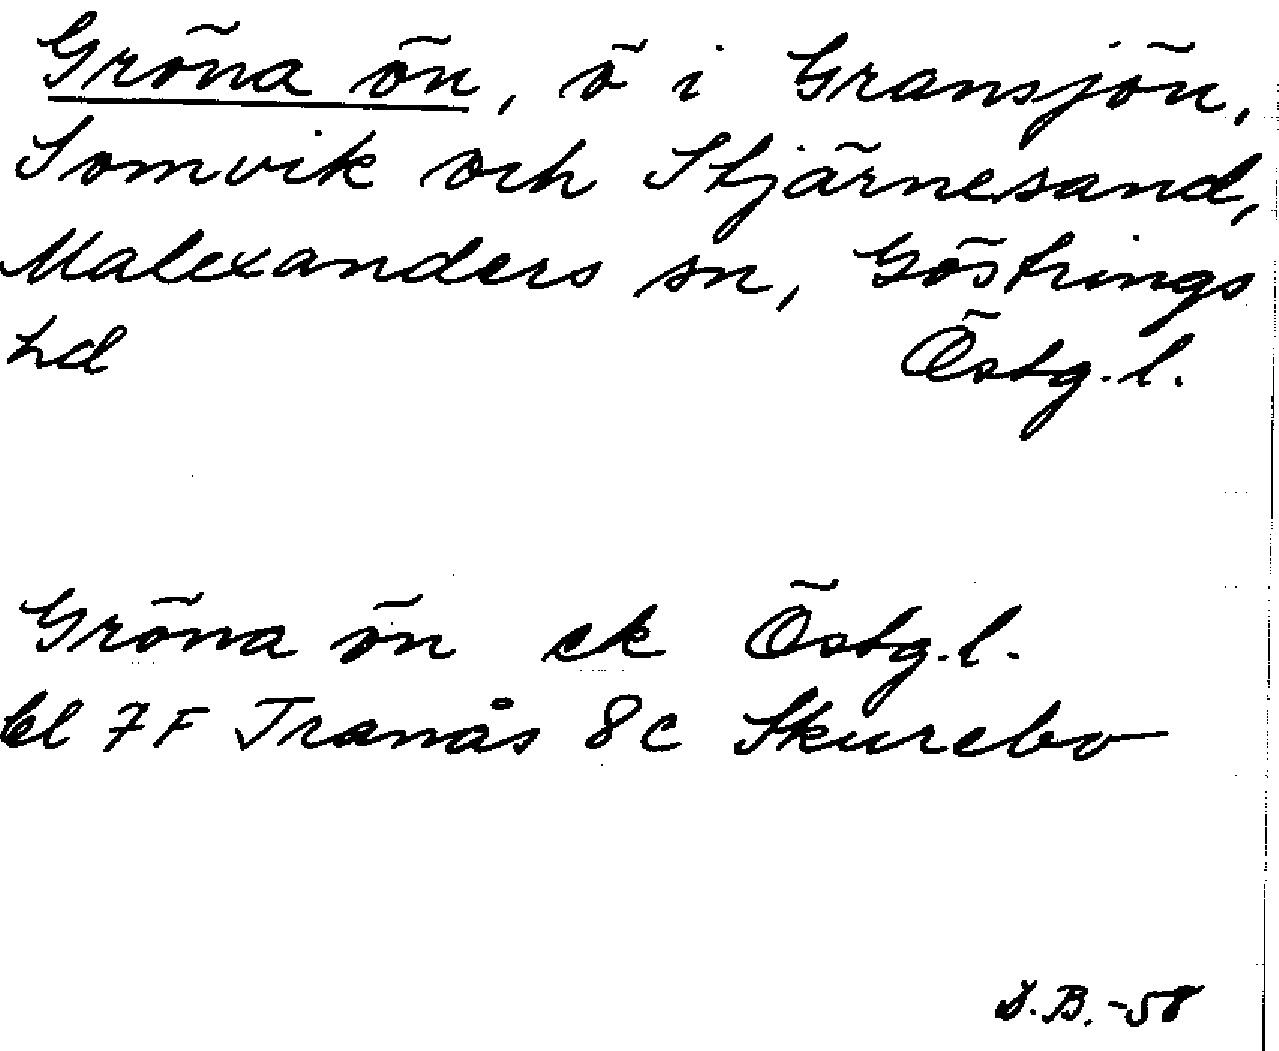 Gröna ön, ö i Gransjön,
Somvik och Stjärnesand,
Malexanders sn, Göstrings
hd Östg.l.
Gröna ön ek Östg.l.
bl 7F Tranås 8c Skurebo
S.B. -58